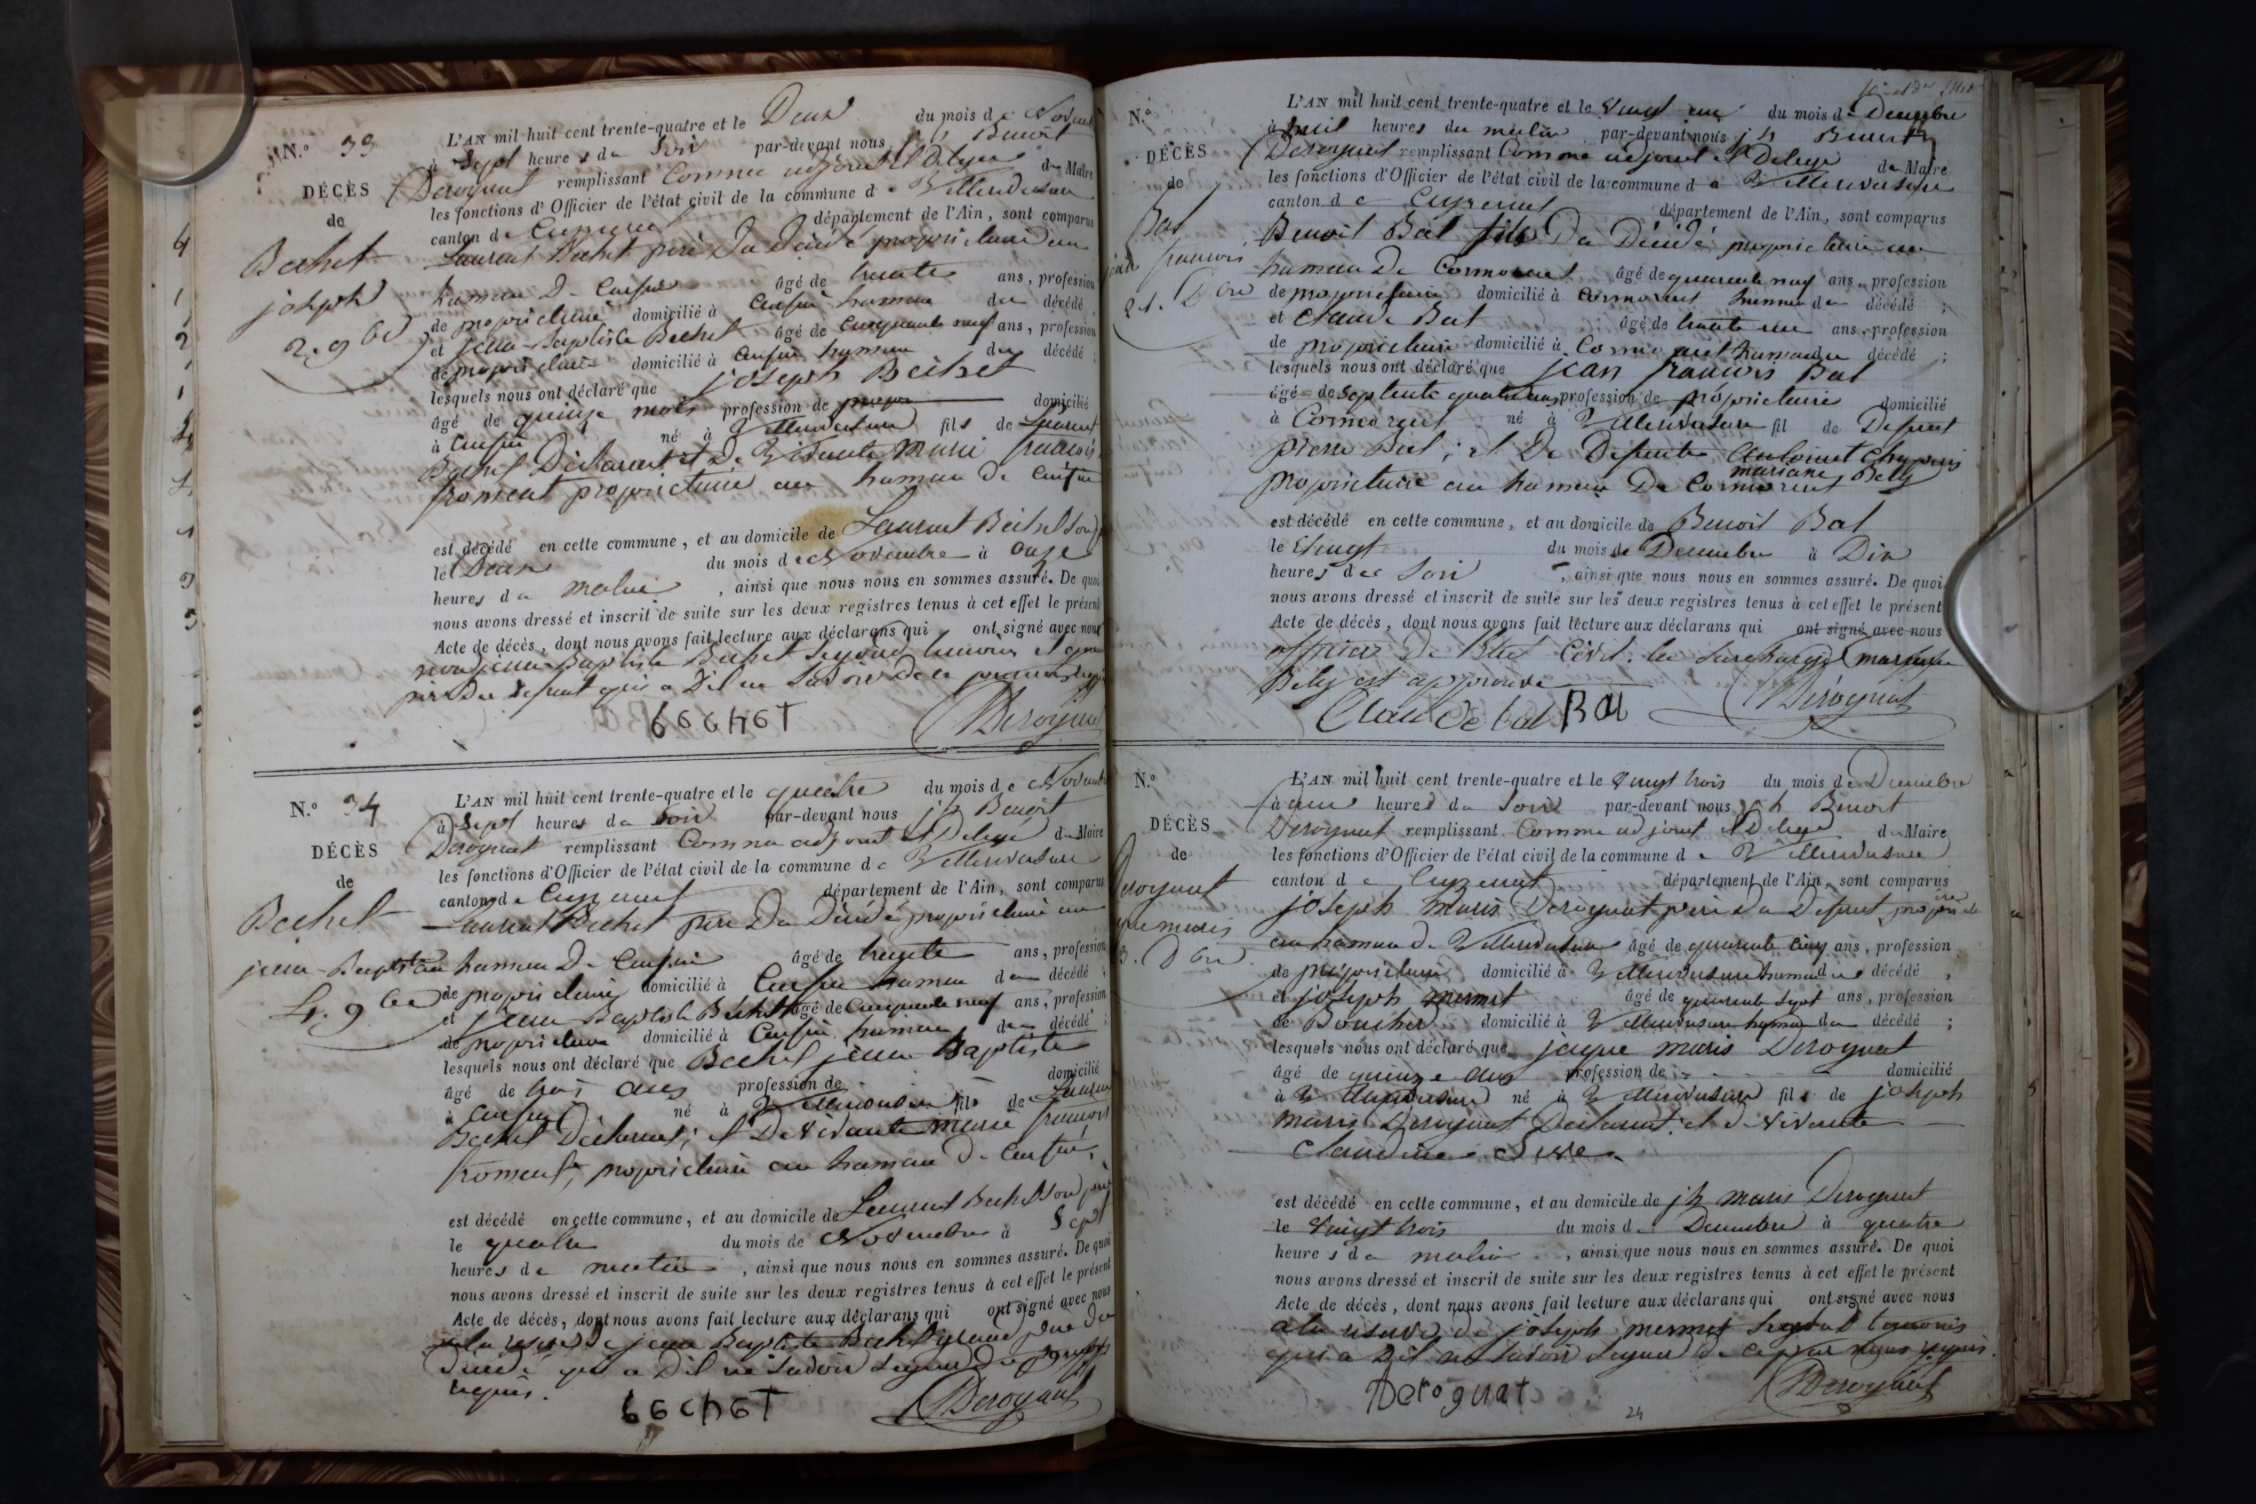 N.o 33
DÉCÈS
de
Bechet
joseph
2. 9 bre
L'AN mil huit cent trente-quatre et le Deux du mois de Novembre
à Sept heures du Soir par-devant nous jh Benoit
Deroguat remplissant Comme adjoint et Delegué du Maire
les fonctions d'Officier de l'état civil de la commune de Villereversure
canton de département de l'Ain, sont comparus
Laurent Bechet père Du Décédé propriétaire au
hameau De âgé de trente ans, profession
de propriétaire domicilié à hameau du décédé ;
et jean-Baptiste Bechet âgé de Cinquante neuf ans, profession
de propriétaire domicilié à hameau du décédé ;
lesquels nous ont déclaré que joseph Bechet
âgé de quinze mois profession de domicilié
à né à Villereversure fils de Laurent
Bechet Déclarant et De Vivante Marie françois
froment propriétaire au hameau de
est décédé en cette commune, et au domicile de Laurent Bechet Son
le Deux du mois de Novembre à onze
heures du matin, ainsi que nous nous en sommes assuré. De quoi
nous avons dressé et inscrit de suite sur les deux registres tenus à cet effet le présent
Acte de décès, dont nous avons fait lecture aux déclarans qui ont signé avec nous
non jean Baptiste Bechet Segond temoin et
père Du Defunt qui a Dit ne Savoir de ce
bechet Deroguat
N.o 34
DÉCÈS
de
Bechet
jean-Baptiste
4. 9 bre
L'AN mil huit cent trente-quatre et le quatre du mois de Novembre
à Sept heures du Soir par-devant nous jh Benoit
Deroguat remplissant Comme adjoint et Delegué du Maire
les fonctions d'Officier de l'état civil de la commune de Villereversure
canton de Ceyzeriat département de l'Ain, sont comparus
Laurent Bechet père Du Décédé propriétaire au
hameau De âgé de trente ans, profession
de propriétaire domicilié à hameau du décédé ;
et jean Baptiste Bechet âgé de Cinquante neuf ans, profession
de propriétaire domicilié à hameau du décédé ;
lesquels nous ont déclaré que Bechet jean Baptiste
âgé de trois ans profession de domicilié
à né à Villereversure fils de Laurent
Bechet Déclarant ; et De vivante marie françois
froment, propriétaire au hameau de
est décédé en cette commune, et au domicile de Laurent Bechet Son père
le quatre du mois de Novembre à Sept
heures du matin, ainsi que nous nous en sommes assuré. De quoi
nous avons dressé et inscrit de suite sur les deux registres tenus à cet effet le présent
Acte de décès, dont nous avons fait lecture aux déclarans qui ont signé avec nous
a la reserve de jean Baptiste Bechet père Du
Décédé qui a Dit ne Savoir Signer De ce
requis.
bechet Deroguat
N.o
DÉCÈS
de
Bal
jean françois
21. Dbre
L'AN mil huit cent trente-quatre et le vingt un du mois de Decembre
à huit heures du matin par-devant nous jh Benoit
Deroguat remplissant Comme adjoint et Delegué du Maire
les fonctions d'Officier de l'état civil de la commune de Villereversure
canton de Ceyzeriat département de l'Ain, sont comparus
Benoit Bal fils Du Décédé propriétaire au
hameau De Cormorent âgé de quarante neuf ans, profession
de propriétaire domicilié à Cormorent hameau du décédé ;
et Claude Bal âgé de trente un ans, profession
de propriétaire domicilié à Cormorent hameau du décédé ;
lesquels nous ont déclaré que jean françois Bal
âgé de Septente quatre ans profession de propriétaire domicilié
à Cormorent né à Villereversure fil de Defunt
pierre Bal ; et De Defunte
mariane Bely
propriétaire au hameau De Cormorent
est décédé en cette commune, et au domicile de Benoit Bal
le Vingt du mois de Decembre à Dix
heures du Soir, ainsi que nous nous en sommes assuré. De quoi
nous avons dressé et inscrit de suite sur les deux registres tenus à cet effet le présent
Acte de décès, dont nous avons fait lecture aux déclarans qui ont signé avec nous
officier De l'état Civil. la Surcharge mariane
Bely est approuvée
Claude bal Bal Deroguat
N.o
DÉCÈS
de
Deroguat
jaque marie
23. Dbre
L'AN mil huit cent trente-quatre et le vingt trois du mois de Decembre
à une heures du Soir par-devant nous jh Benoit
Deroguat remplissant Comme adjoint et Delegué du Maire
les fonctions d'Officier de l'état civil de la commune de Villereversure
canton de Ceyzeriat département de l'Ain, sont comparus
joseph Marie Deroguat père du Defunt propriétaire
au hameau de Villereversure âgé de quarante cinq ans, profession
de propriétaire domicilié à Villereversure hameau du décédé ,
et joseph mermet âgé de quarante Sept ans, profession
de Boucher domicilié à Villereversure hameau du décédé ;
lesquels nous ont déclaré que jaque marie Deroguat
âgé de quinze ans profession de domicilié
à Villereversure né à Villereversure fils de joseph
marie Deroguat Declarant et de vivante
Claudine
est décédé en cette commune, et au domicile de jh marie Deroguat
le vingt trois du mois de Decembre à quatre
heures du matin, ainsi que nous nous en sommes assuré. De quoi
nous avons dressé et inscrit de suite sur les deux registres tenus à cet effet le présent
Acte de décès, dont nous avons fait lecture aux déclarans qui ont signé avec nous
a la reserve de joseph mermet Segond temoin
qui a Dit ne Savoir Signer de ce par nous requis.
Deroguat Deroguat
24